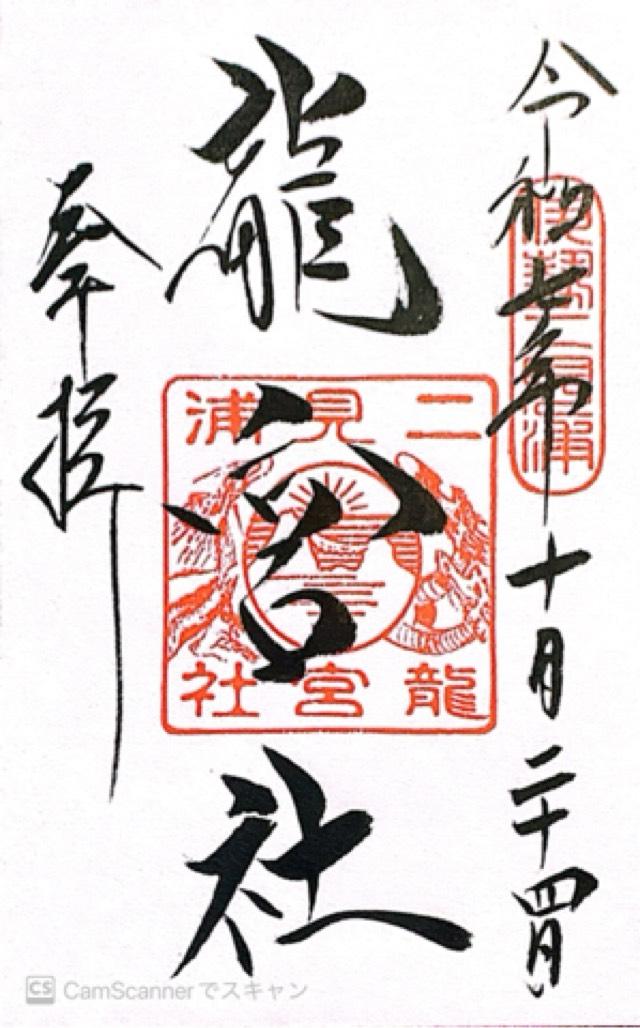 令和七年十月二十四日
龍宮社
二見浦
龍宮社
奉拝
CS CamScannerでスキャン